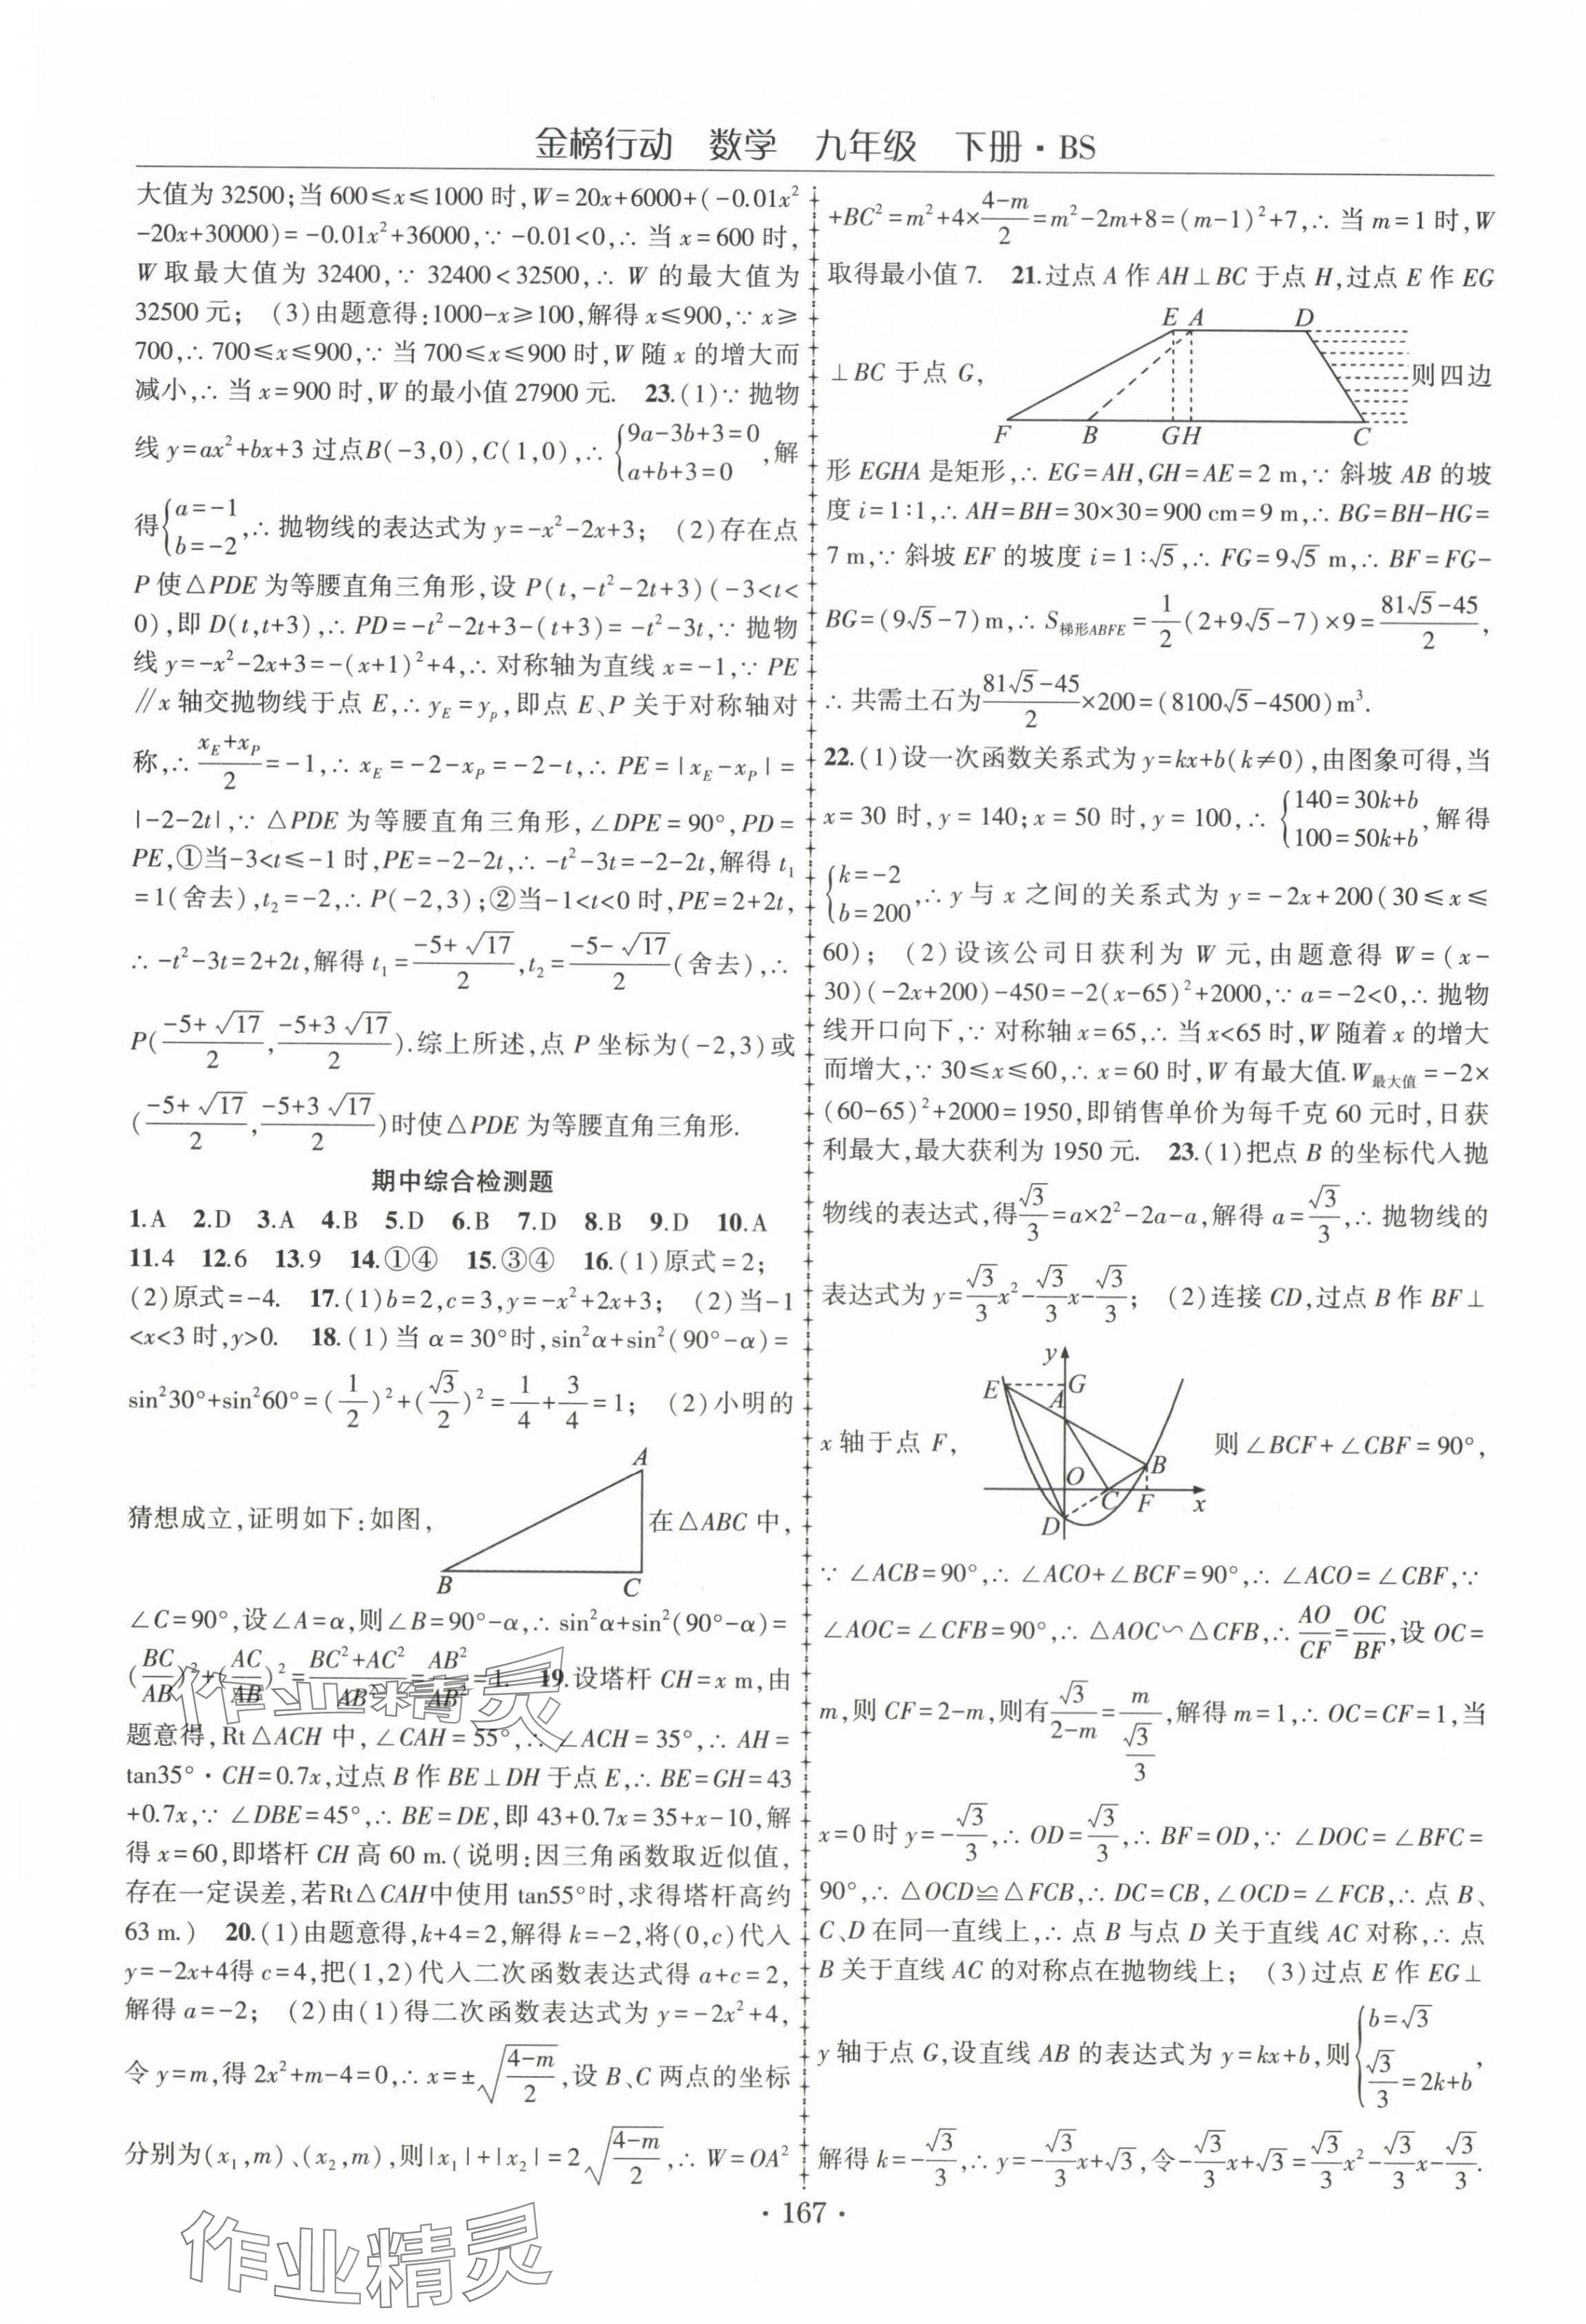 金榜行动 数学 九年级 下册·BS
大值为 32500;当 600≤x≤1000 时,W=20x+6000+(-0.01x²
-20x+30000)=-0.01x²+36000,∵ -0.01<0,∴ 当 x=600 时,
W 取最大值为 32400,∵ 32400<32500,∴ W 的最大值为
32500 元; (3)由题意得:1000-x≥100,解得 x≤900,∵ x≥
700,∴ 700≤x≤900,∵ 当 700≤x≤900 时,W 随 x 的增大而
减小,∴ 当 x=900 时,W 的最小值 27900 元. 23.(1)∵ 抛物
线 y=ax²+bx+3 过点B(-3,0),C(1,0),∴ {9a-3b+3=0 a+b+3=0,解
得{a=-1 b=-2,∴ 抛物线的表达式为 y=-x²-2x+3; (2)存在点
P 使△PDE 为等腰直角三角形,设 P(t,-t²-2t+3)(-3<t<
0),即 D(t,t+3),∴ PD=-t²-2t+3-(t+3)=-t²-3t,∵ 抛物
线 y=-x²-2x+3=-(x+1)²+4,∴ 对称轴为直线 x=-1,∵ PE
∥x 轴交抛物线于点 E,∴ y_E=y_p,即点 E、P 关于对称轴对
称,∴ (x_E+x_P)/2=-1,∴ x_E=-2-x_P=-2-t,∴ PE=|x_E-x_P|=
|-2-2t|,∵ △PDE 为等腰直角三角形,∠DPE=90°,PD=
PE,①当-3<t≤-1 时,PE=-2-2t,∴ -t²-3t=-2-2t,解得 t₁
=1(舍去),t₂=-2,∴ P(-2,3);②当-1<t<0 时,PE=2+2t,
∴ -t²-3t=2+2t,解得 t₁=(-5+√17)/2,t₂=(-5-√17)/2(舍去),∴
P((-5+√17)/2,(-5+3√17)/2).综上所述,点 P 坐标为(-2,3)或
((-5+√17)/2,(-5+3√17)/2)时使△PDE 为等腰直角三角形.
期中综合检测题
1.A 2.D 3.A 4.B 5.D 6.B 7.D 8.B 9.D 10.A
11.4 12.6 13.9 14.①④ 15.③④ 16.(1)原式=2;
(2)原式=-4. 17.(1)b=2,c=3,y=-x²+2x+3; (2)当-1
<x<3 时,y>0. 18.(1)当 α=30°时,sin²α+sin²(90°-α)=
sin²30°+sin²60°=(1/2)²+(√3/2)²=1/4+3/4=1; (2)小明的
猜想成立,证明如下:如图, A B C 在△ABC 中,
∠C=90°,设∠A=α,则∠B=90°-α,∴ sin²α+sin²(90°-α)=
(BC/AB)²+(AC/AB)²=(BC²+AC²)/AB²=AB²/AB²=1. 19.设塔杆 CH=x m,由
题意得,Rt△ACH 中,∠CAH=55°,∴ ∠ACH=35°,∴ AH=
tan35°·CH=0.7x,过点 B 作 BE⊥DH 于点 E,∴ BE=GH=43
+0.7x,∵ ∠DBE=45°,∴ BE=DE,即 43+0.7x=35+x-10,解
得 x=60,即塔杆 CH 高 60 m.(说明:因三角函数取近似值,
存在一定误差,若Rt△CAH中使用 tan55°时,求得塔杆高约
63 m.) 20.(1)由题意得,k+4=2,解得 k=-2,将(0,c)代入
y=-2x+4得 c=4,把(1,2)代入二次函数表达式得 a+c=2,
解得 a=-2; (2)由(1)得二次函数表达式为 y=-2x²+4,
令 y=m,得 2x²+m-4=0,∴ x=±√((4-m)/2),设 B、C 两点的坐标
分别为(x₁,m)、(x₂,m),则|x₁|+|x₂|=2√((4-m)/2),∴ W=OA²
+BC²=m²+4×(4-m)/2=m²-2m+8=(m-1)²+7,∴ 当 m=1 时,W
取得最小值 7. 21.过点 A 作 AH⊥BC 于点 H,过点 E 作 EG
E A D
⊥BC 于点 G, 则四边
F B G H C
形 EGHA 是矩形,∴ EG=AH,GH=AE=2 m,∵ 斜坡 AB 的坡
度 i=1∶1,∴ AH=BH=30×30=900 cm=9 m,∴ BG=BH-HG=
7 m,∵ 斜坡 EF 的坡度 i=1∶√5,∴ FG=9√5 m,∴ BF=FG-
BG=(9√5-7)m,∴ S梯形ABFE=1/2(2+9√5-7)×9=(81√5-45)/2,
∴ 共需土石为(81√5-45)/2×200=(8100√5-4500)m³.
22.(1)设一次函数关系式为 y=kx+b(k≠0),由图象可得,当
x=30 时,y=140;x=50 时,y=100,∴ {140=30k+b 100=50k+b,解得
{k=-2 b=200,∴ y 与 x 之间的关系式为 y=-2x+200(30≤x≤
60); (2)设该公司日获利为 W 元,由题意得 W=(x-
30)(-2x+200)-450=-2(x-65)²+2000,∵ a=-2<0,∴ 抛物
线开口向下,∵ 对称轴 x=65,∴ 当 x<65 时,W 随着 x 的增大
而增大,∵ 30≤x≤60,∴ x=60 时,W 有最大值.W最大值=-2×
(60-65)²+2000=1950,即销售单价为每千克 60 元时,日获
利最大,最大获利为 1950 元. 23.(1)把点 B 的坐标代入抛
物线的表达式,得√3/3=a×2²-2a-a,解得 a=√3/3,∴ 抛物线的
表达式为 y=√3/3x²-√3/3x-√3/3; (2)连接 CD,过点 B 作 BF⊥
y E G A
x 轴于点 F, 则∠BCF+∠CBF=90°,
B O C F x D
∵ ∠ACB=90°,∴ ∠ACO+∠BCF=90°,∴ ∠ACO=∠CBF,∵
∠AOC=∠CFB=90°,∴ △AOC∽△CFB,∴ AO/CF=OC/BF,设 OC=
m,则 CF=2-m,则有√3/(2-m)=m/(√3/3),解得 m=1,∴ OC=CF=1,当
x=0 时 y=-√3/3,∴ OD=√3/3,∴ BF=OD,∵ ∠DOC=∠BFC=
90°,∴ △OCD≌△FCB,∴ DC=CB,∠OCD=∠FCB,∴ 点 B、
C、D 在同一直线上,∴ 点 B 与点 D 关于直线 AC 对称,∴ 点
B 关于直线 AC 的对称点在抛物线上; (3)过点 E 作 EG⊥
y 轴于点 G,设直线 AB 的表达式为 y=kx+b,则{b=√3 √3/3=2k+b,
解得 k=-√3/3,∴ y=-√3/3x+√3,令-√3/3x+√3=√3/3x²-√3/3x-√3/3.
· 167 ·
作业精灵
作业精灵